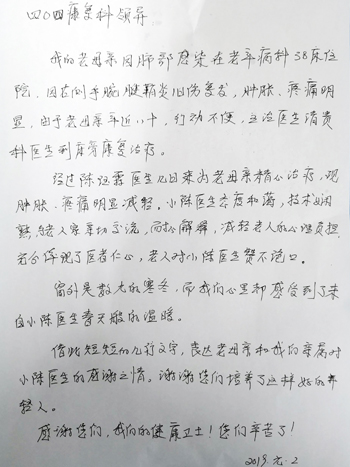 四〇四康复科领导
我的老母亲因肺部感染在老年病科38床住
院，因右侧手腕腱鞘炎旧伤复发，肿胀、疼痛明
显，由于老母亲年近八十，行动不便，主治医生请贵
科医生到床旁康复治疗。
经过陈医生几日来为老母亲精心治疗，现
肿胀、疼痛明显减轻。小陈医生态度和蔼，技术娴
熟，与老人亲切交流，耐心解释，减轻老人的心理负担，
充分体现了医者仁心，老人对小陈医生赞不绝口。
窗外是数九的寒冬，而我的心里却感受到了来
自小陈医生春天般的温暖。
借此短短的几行文字，表达老母亲和我们亲属对
小陈医生的感谢之情，谢谢您们培养了这样好的年
轻人。
感谢您们，我们的健康卫士！您们辛苦了！
2019.元.2